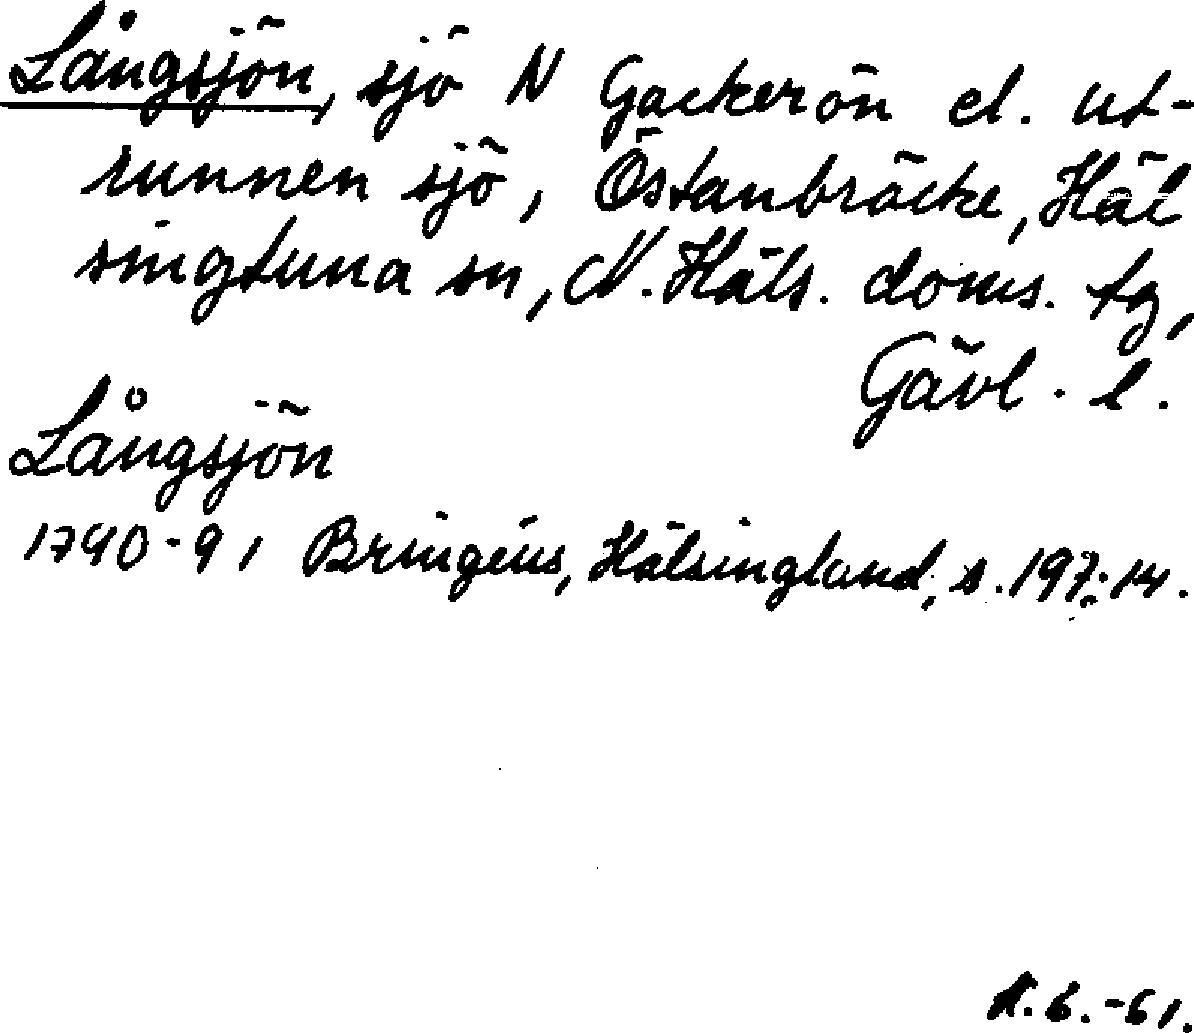 Långsjön, sjö N Gackerön el. ut-
runnen sjö, Östanbräcke, Häl
singtuna sn, N. Häls. doms. tg,
Gävl. l.
Långsjön
1790-91 Bringéus, Hälsingland, s. 197: 14.
.6.-61.